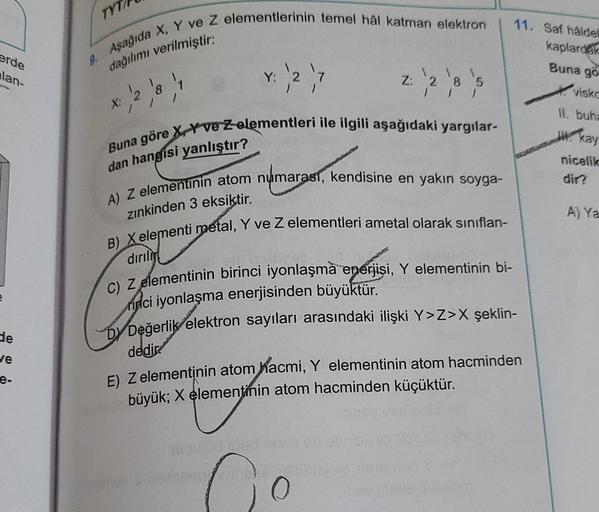 TYT/
9. Aşağıda X, Y ve Z elementlerinin temel hâl katman elektron
dağılımı verilmiştir:
X: 2 8 1
Y: 2 7
Z: 2 8 5
Buna göre X, Y ve Z elementleri ile ilgili aşağıdaki yargılar-
dan hangisi yanlıştır?
A) Z elementinin atom numarası, kendisine en yakın soyga-
zınkinden 3 eksiktir.
B) X elementi metal, Y ve Z elementleri ametal olarak sınıflan-
dırılır.
C) Z elementinin birinci iyonlaşma enerjisi, Y elementinin bi-
rinci iyonlaşma enerjisinden büyüktür.
D) Değerlik elektron sayıları arasındaki ilişki Y>Z>X şeklin-
dedir.
E) Z elementinin atom hacmi, Y elementinin atom hacminden
büyük; X elementinin atom hacminden küçüktür.
11. Saf hâldel
kaplardak
Buna gö
I. visko
II. buha
III. kay
nicelik
dir?
A) Ya
erde
lan-
de
ve
e-